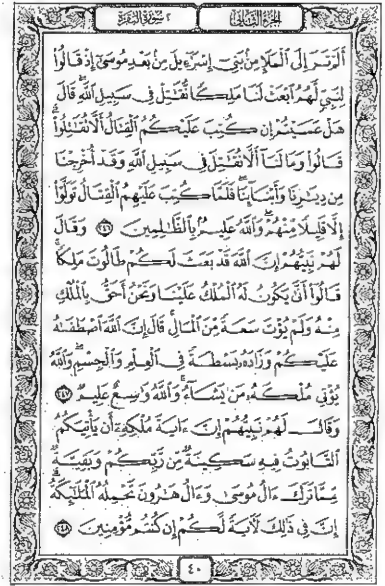 الجزء الثاني
٢ سورة البقرة
ألم تر إلى الملإ من بني إسرءيل من بعد موسى إذ قالوا
لنبي لهم ابعث لنا ملكا نقتل في سبيل الله قال
هل عسيتم إن كتب عليكم القتال ألا تقتلوا
قالوا وما لنا ألا نقتل في سبيل الله وقد أخرجنا
من ديرنا وأبنائنا فلما كتب عليهم القتال تولوا
إلا قليلا منهم والله عليم بالظلمين ٢٤٦ وقال
لهم نبيهم إن الله قد بعث لكم طالوت ملكا
قالوا أنى يكون له الملك علينا ونحن أحق بالملك
منه ولم يؤت سعة من المال قال إن الله اصطفىه
عليكم وزاده بسطة في العلم والجسم والله
يؤتي ملكه من يشاء والله وسع عليم ٢٤٧
وقال لهم نبيهم إن ءاية ملكه أن يأتيكم
التابوت فيه سكينة من ربكم وبقية
مما ترك ءال موسى وءال هرون تحمله الملئكة
إن في ذلك لأية لكم إن كنتم مؤمنين ٢٤٨
٤٠